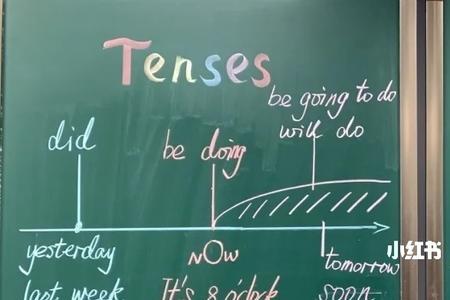 Tenses
be going to do
will do
did
be doing
yesterday
NOW
tomorrow
last week
It's 8 o'clock
soon
小红书